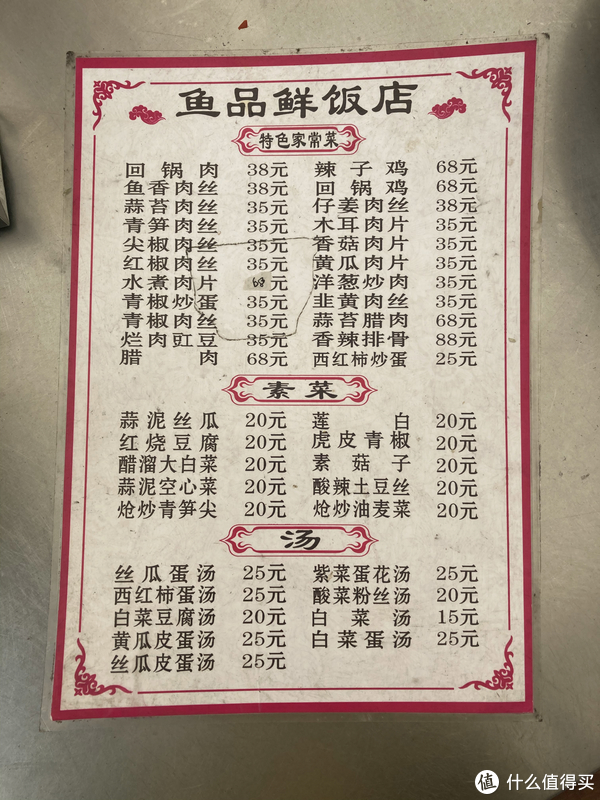 鱼品鲜饭店
特色家常菜
回锅肉 38元 辣子鸡 68元
鱼香肉丝 38元 回锅鸡 68元
蒜苔肉丝 35元 仔姜肉丝 38元
青笋肉丝 35元 木耳肉片 35元
尖椒肉丝 35元 香菇肉片 35元
红椒肉丝 35元 黄瓜肉片 35元
水煮肉片 68 洋葱炒肉 35元
青椒炒蛋 35元 韭黄肉丝 35元
青椒肉丝 35元 蒜苔腊肉 68元
烂肉豇豆 35元 香辣排骨 88元
腊肉 68元 西红柿炒蛋 25元
素菜
蒜泥丝瓜 20元 莲白 20元
红烧豆腐 20元 虎皮青椒 20元
醋溜大白菜 20元 素菇子 20元
蒜泥空心菜 20元 酸辣土豆丝 20元
炝炒青笋尖 20元 炝炒油麦菜 20元
汤
丝瓜蛋汤 25元 紫菜蛋花汤 25元
西红柿蛋汤 25元 酸菜粉丝汤 20元
白菜豆腐汤 20元 白菜汤 15元
黄瓜皮蛋汤 25元 白菜蛋汤 25元
丝瓜皮蛋汤 25元
值 什么值得买